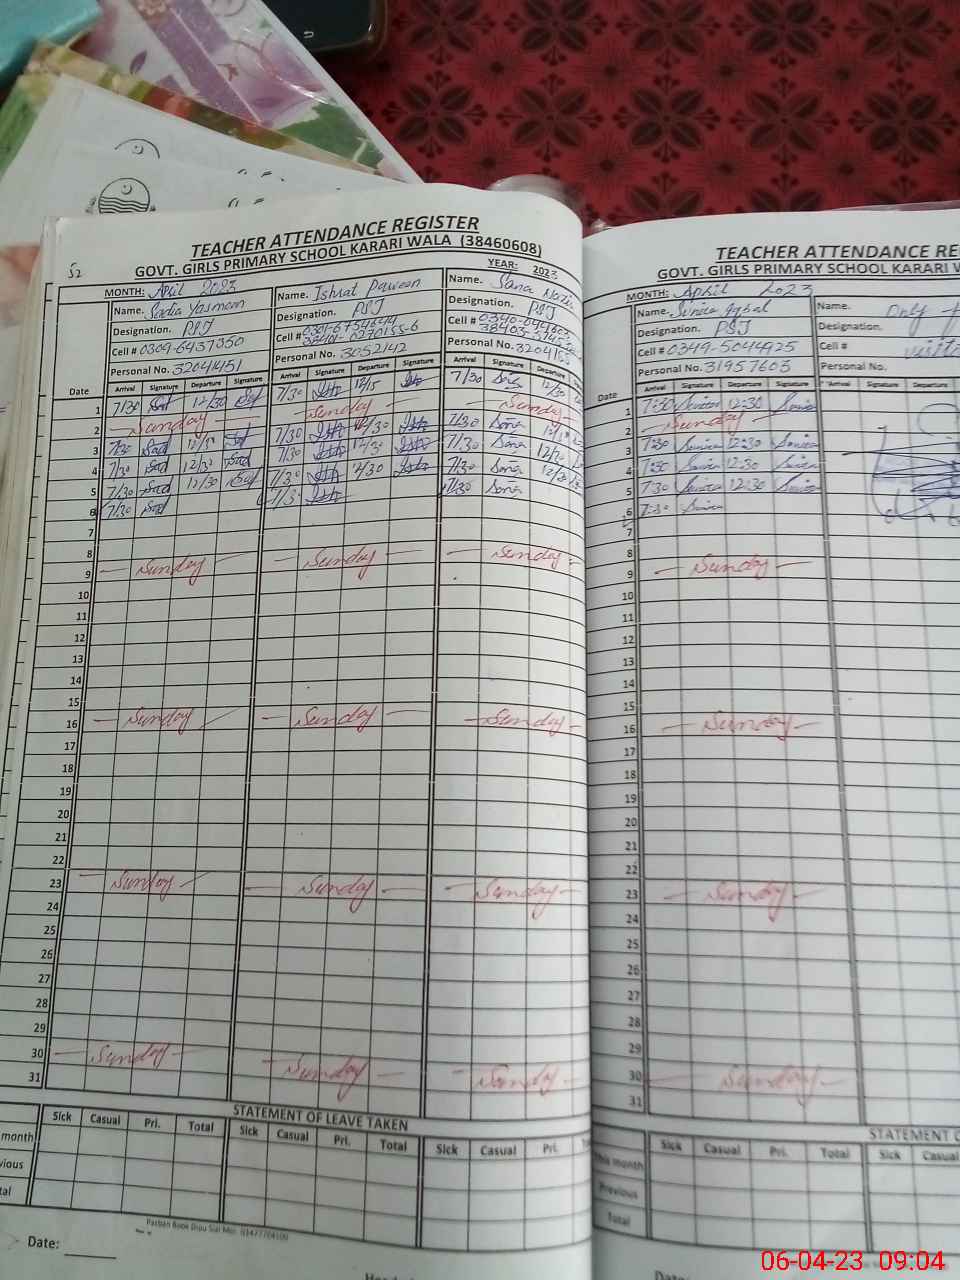 TEACHER ATTENDANCE REGISTER
GOVT. GIRLS PRIMARY SCHOOL KARARI WALA (38460608)
52
MONTH: April 2023
YEAR: 2023
Name. Sadia Yasmeen
Designation. PSJ
Cell # 0309-6437350
Personal No. 32041451
Name. Ishrat Parveen
Designation. PSJ
Cell #
Personal No. 3052142
Name. Sana
Designation. PSJ
Cell #
Personal No.
Date Arrival Signature Departure Signature Arrival Signature Departure Signature Arrival Signature Departure
1 7/30 Sad 12/30 Sad 7/30 Ish 12/5 Ish 7/30 Sana 12/30
2 Sunday Sunday Sunday
3 7/30 Sad Sad 7/30 Ish 12/30 Ish 7/30 Sana
4 7/30 Sad Sad 7/30 Ish 12/30 Ish 7/30 Sana
5 7/30 Sad 12/30 Sad 7/30 Ish 12/30 Ish 7/30 Sana
6 7/30 Sad 7/3 Ish 7/30 Sana
7
8
9 Sunday Sunday Sunday
10
11
12
13
14
15
16 Sunday Sunday Sunday
17
18
19
20
21
22
23 Sunday Sunday Sunday
24
25
26
27
28
29
30 Sunday Sunday Sunday
31
STATEMENT OF LEAVE TAKEN
Sick Casual Pri. Total Sick Casual Pri. Total Sick Casual Pri.
month
vious
tal
Date:
TEACHER ATTENDANCE RE
GOVT. GIRLS PRIMARY SCHOOL KARARI W
MONTH: April 2023
Name. Iqbal
Designation. PSJ
Cell # 0349-5044925
Personal No. 31957603
Name. Only f
Designation.
Cell # visit
Personal No.
Date Arrival Signature Departure Signature Arrival Signature Departure
1 7:30 12:30
2 Sunday
3 7:30 12:30
4 7:30 12:30
5 7:30 12:30
6 7:30
7
8
9 Sunday
10
11
12
13
14
15
16 Sunday
17
18
19
20
21
22
23 Sunday
24
25
26
27
28
29
30 Sunday
31
STATEMENT O
Sick Casual Pri. Total Sick Casual
This month
Previous
Total
Date:
06-04-23 09:04